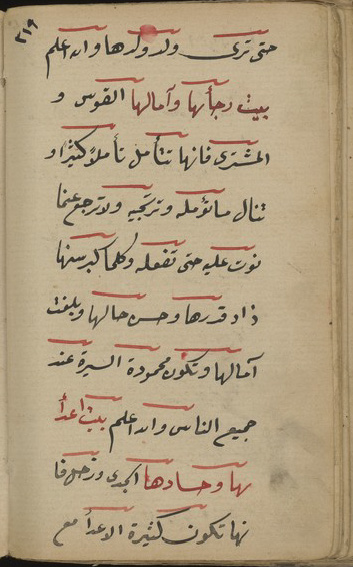 ٣١٩
حتى ترى ولد ولدها والله اعلم
بيت رجأيها وآمالها القوس و
المشترى فانها تتأمل تأملاً كثيرًا و
تنال ماتؤمله وترتجيه ولا ترجع عما
نوت عليه حتى تفعله وكلما كبر سنها
زاد قدرها وحسن حالها وبلغت
آمالها وتكون محمودة السيرة عند
جميع الناس والله اعلم بيت اعدأ
ئها وحسادها الجدى وزحل فا
نها تكون كثيرة الاعدأ مع